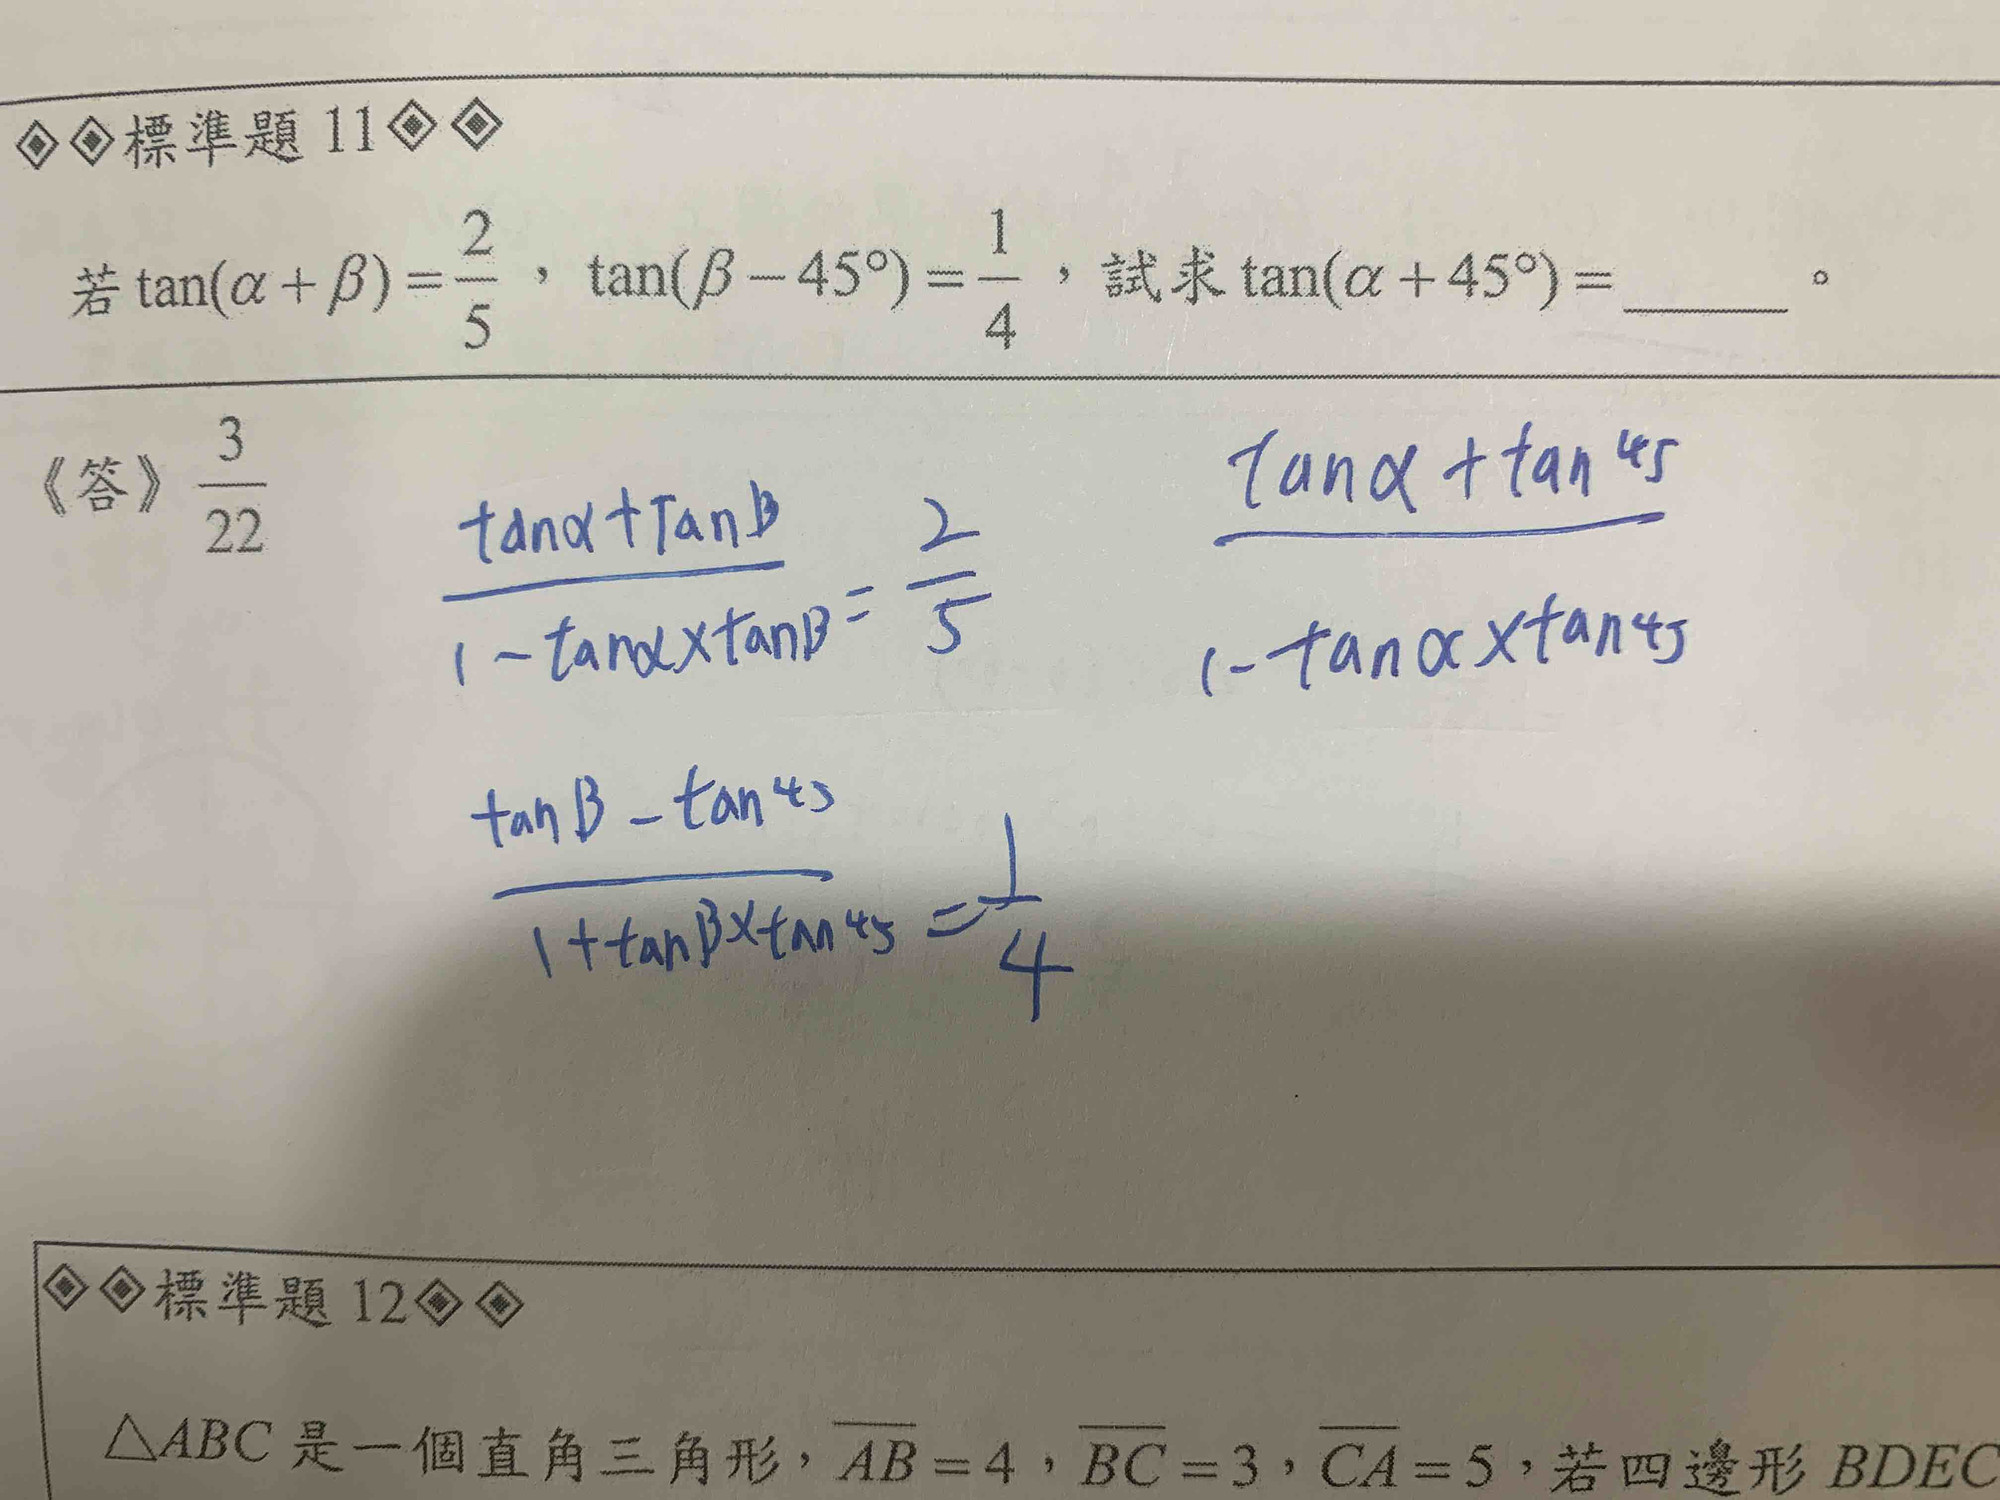 ◈◈標準題 11◈◈
若 tan(α + β) = 2/5 , tan(β − 45°) = 1/4 , 試求 tan(α + 45°) = ______ 。
《答》 3/22
(tanα + tanβ)/(1 − tanα × tanβ) = 2/5
(tanα + tan45)/(1 − tanα × tan45)
(tanβ − tan45)/(1 + tanβ × tan45) = 1/4
◈◈標準題 12◈◈
△ABC 是一個直角三角形, A̅B̅ = 4 , B̅C̅ = 3 , C̅A̅ = 5 , 若四邊形 BDEC